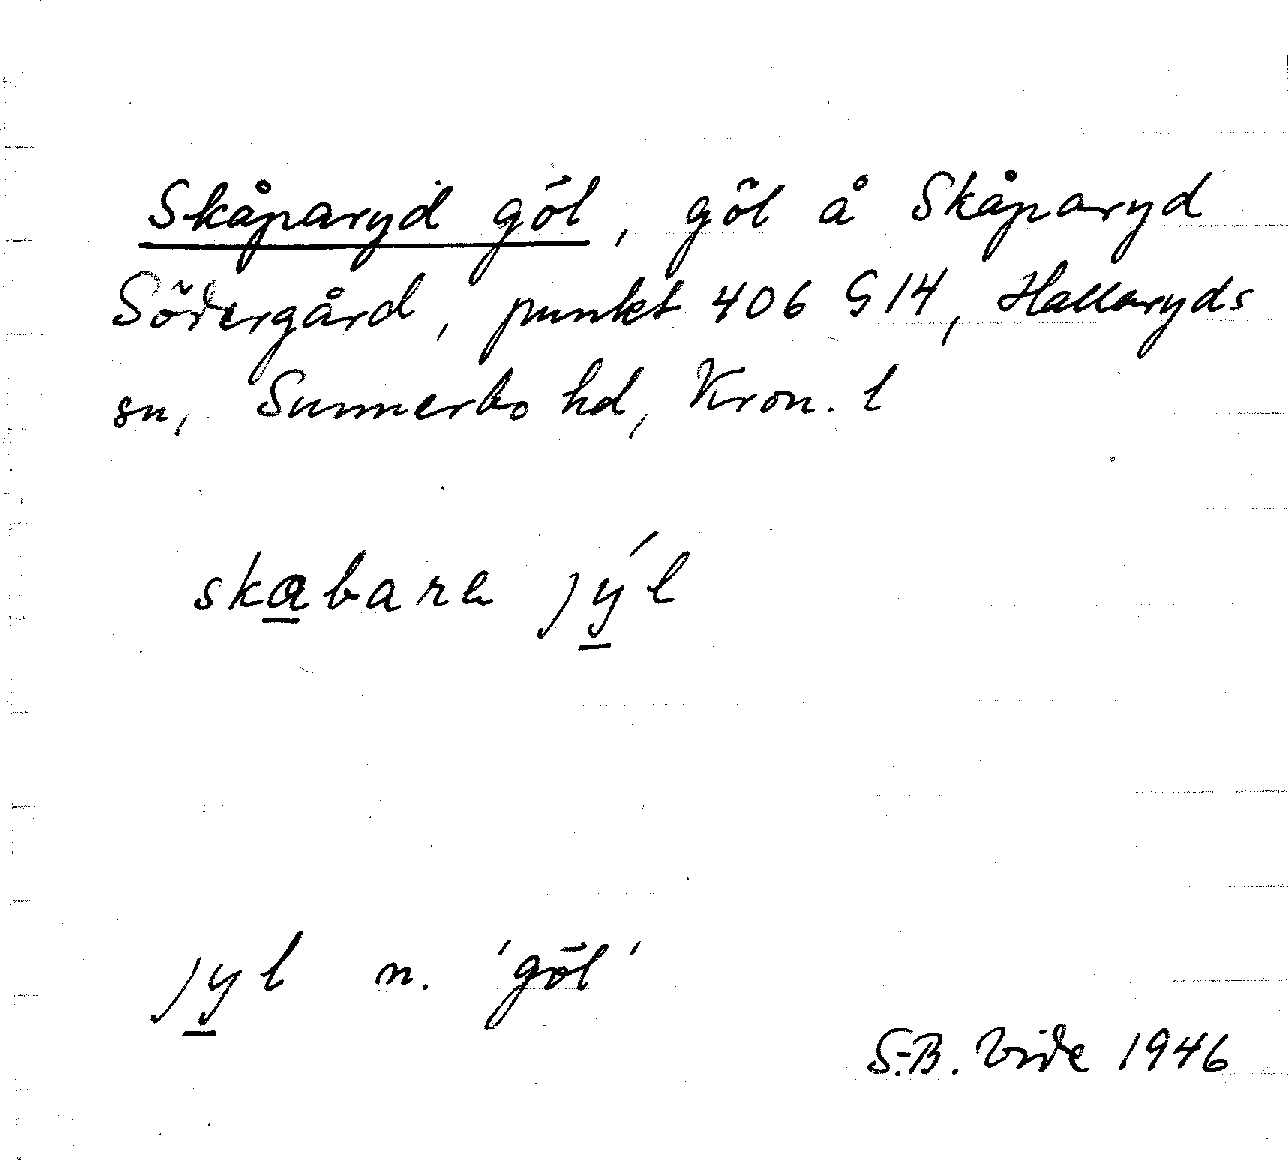 Skåparyd göl, göl å Skåparyd
Södergård, punkt 406 G14, Hallaryds
sn, Sunnerbo hd, Kron. l
skabare jýl
jyl n. 'göl'
S.-B. Vide 1946